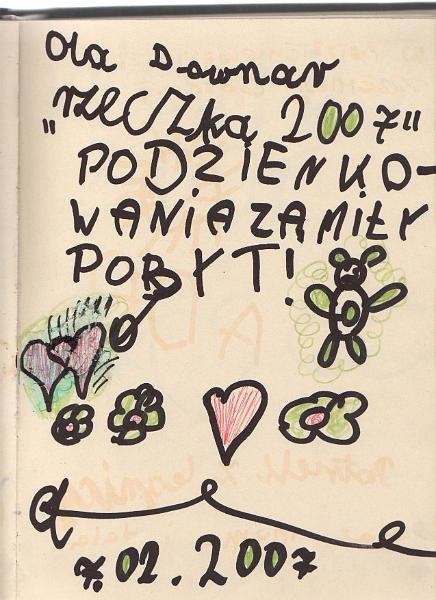 Ola Downar
"RZECZKą 2007"
PODZIENKO-
WANIA ZA MIŁY
POBYT!
7.02.2007